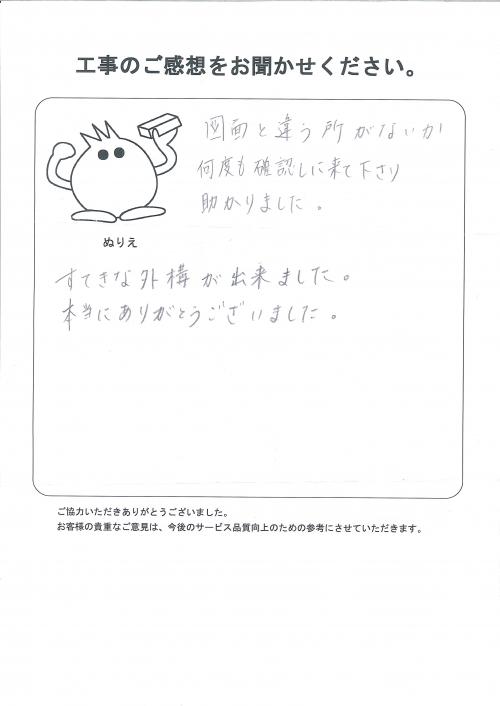 工事のご感想をお聞かせください。
図面と違う所がないか
何度も確認しに来て下さり
助かりました。
ぬりえ
すてきな外構が出来ました。
本当にありがとうございました。
ご協力いただきありがとうございました。
お客様の貴重なご意見は、今後のサービス品質向上のための参考にさせていただきます。